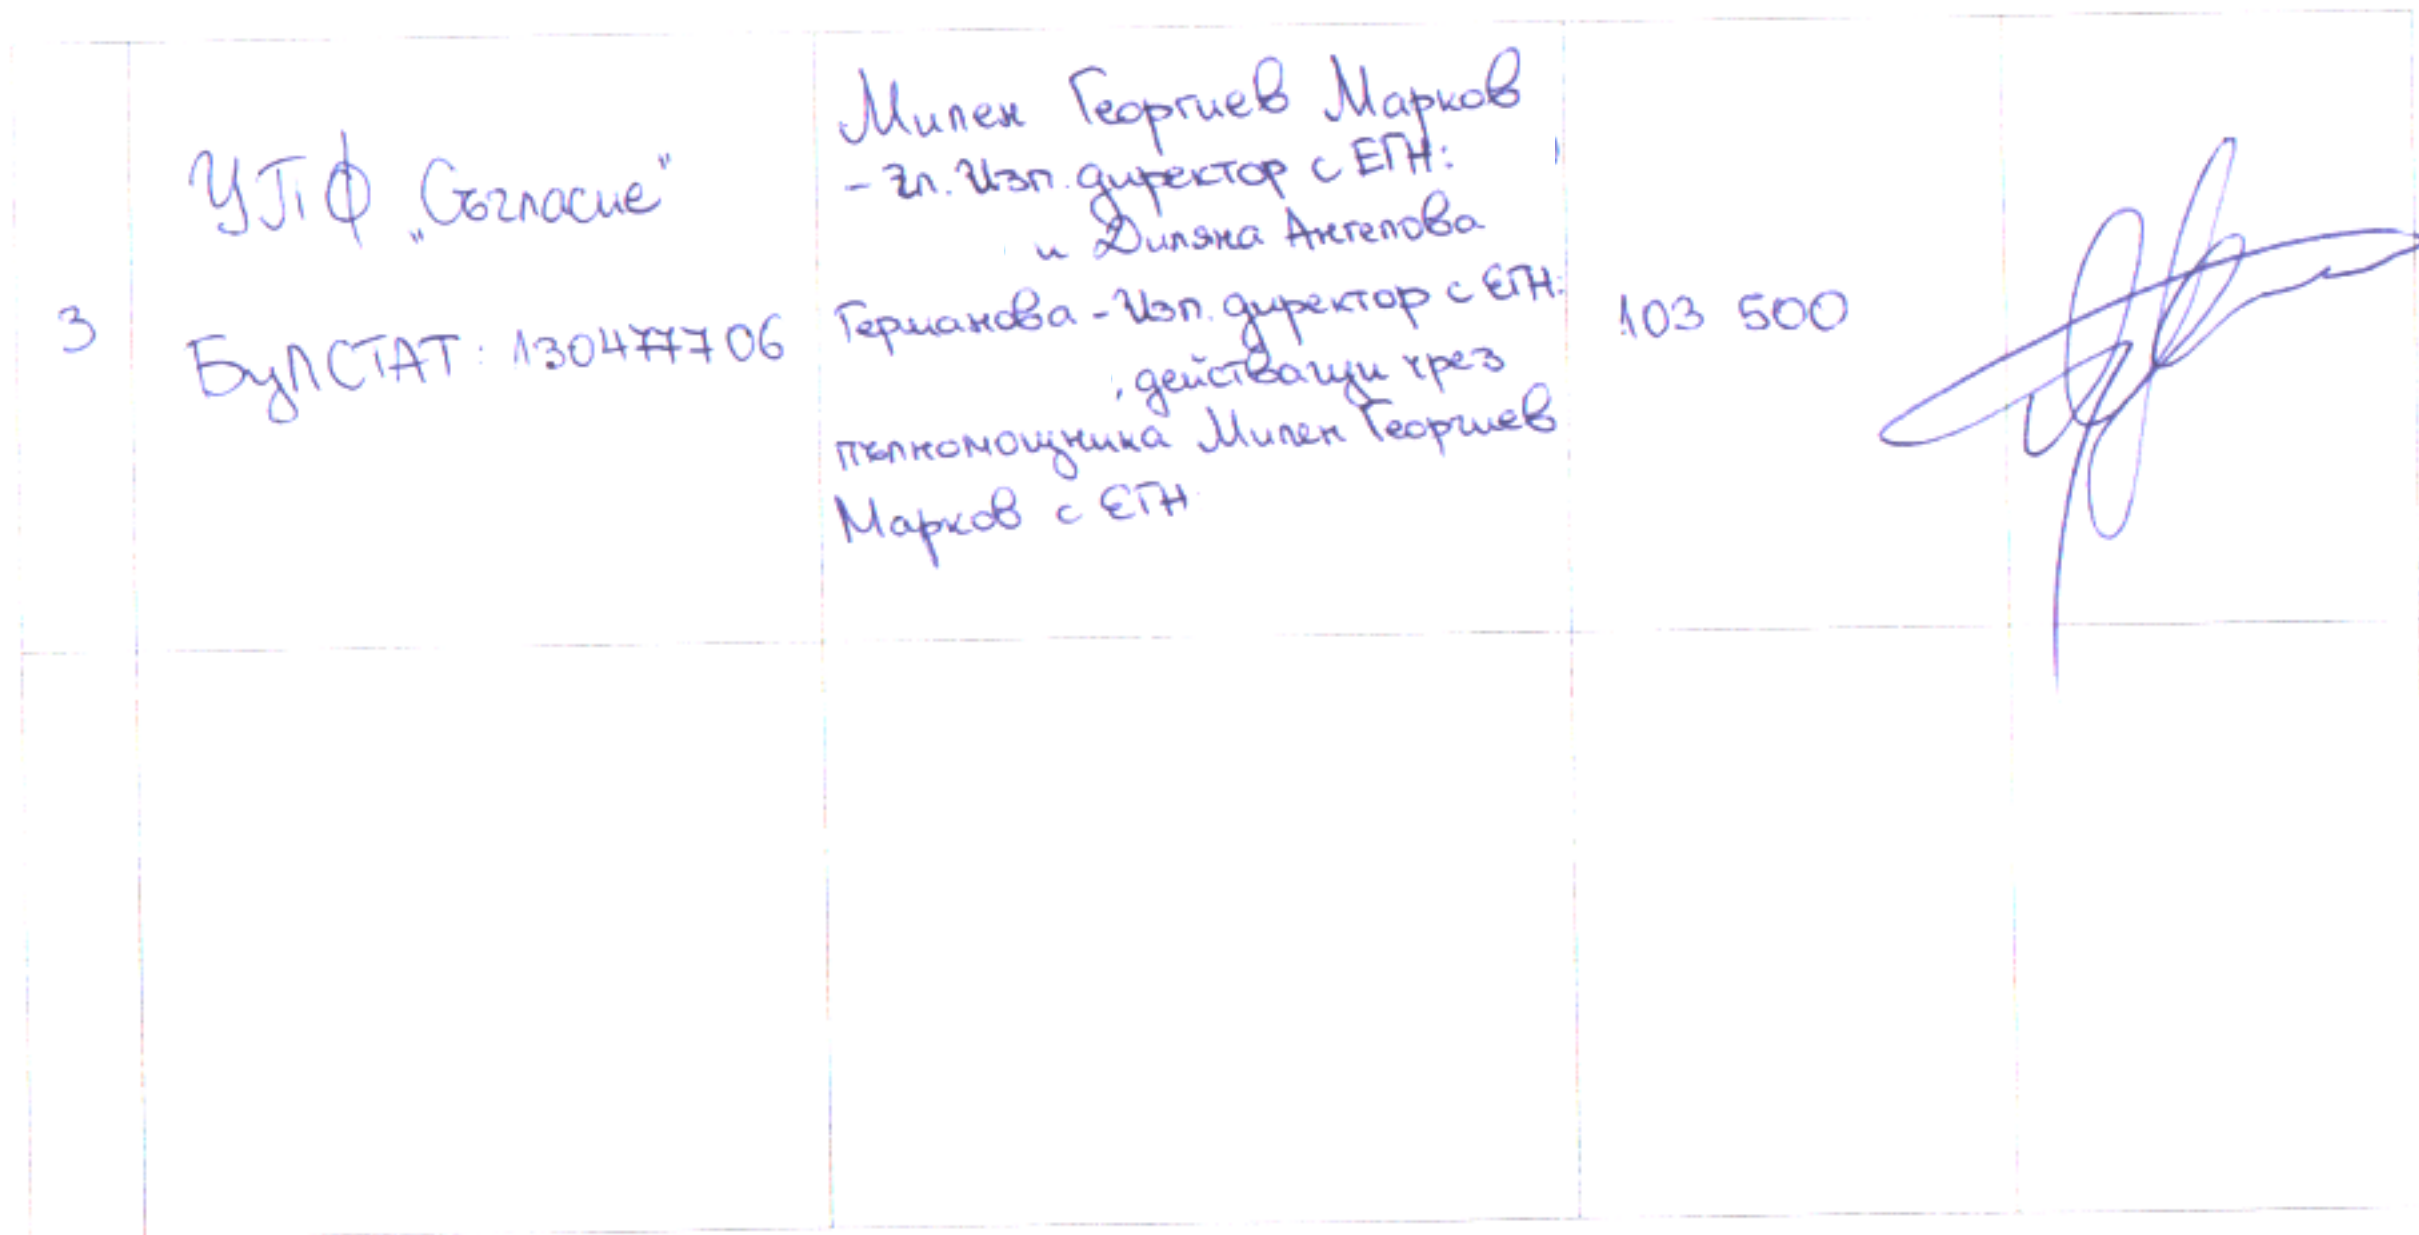 3
УПФ „Съгласие"
БулСТАТ: 130477706
Милен Георгиев Марков
- Гл. Изп. директор с ЕГН:
и Диляна Ангелова
Германова - Изп. директор с ЕГН:
, действащи чрез
пълномощника Милен Георгиев
Марков с ЕГН
103 500